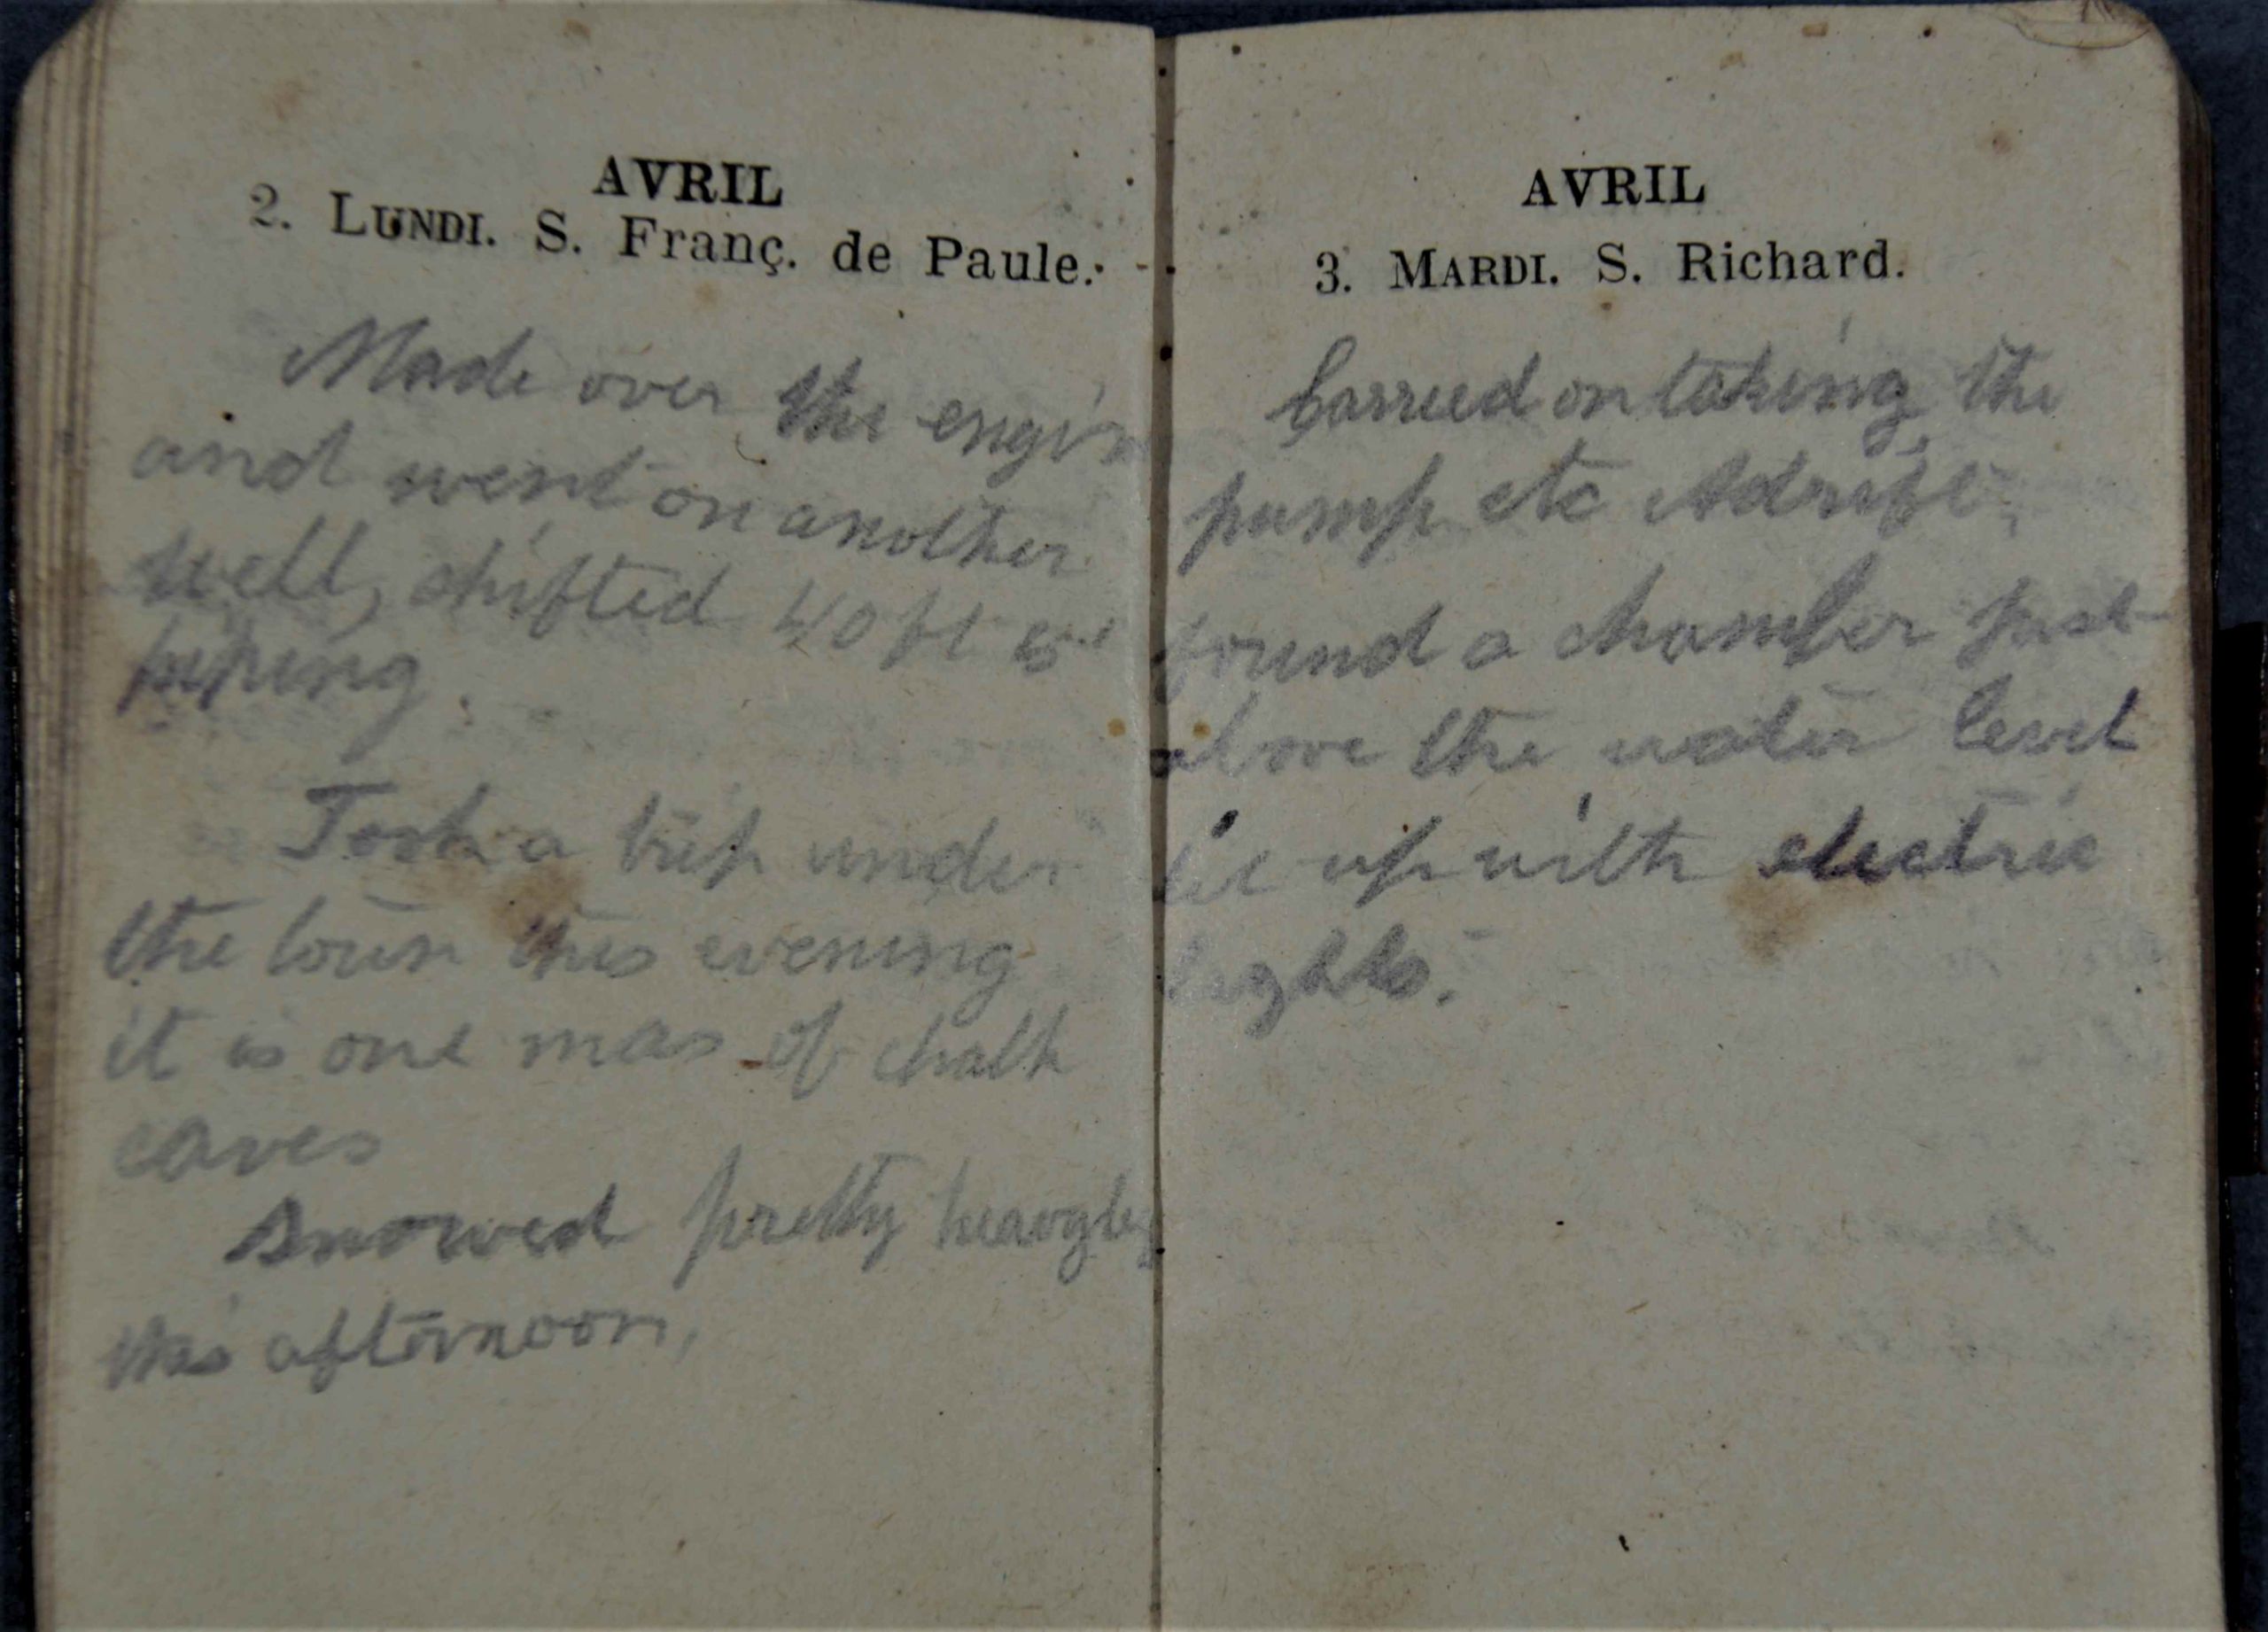 AVRIL
2. LUNDI. S. Franç. de Paule.
Made over the engin
and went on another
well, shifted 40 ft 6"
piping.
Took a trip under
the town this evening
it is one mas of chalk
caves
Snowed pretty heavyly
this afternoon,
AVRIL
3. MARDI. S. Richard.
Carried on taking the
pump etc Adrift,
found a chamber just
above the water level
lit up with electric
lights.